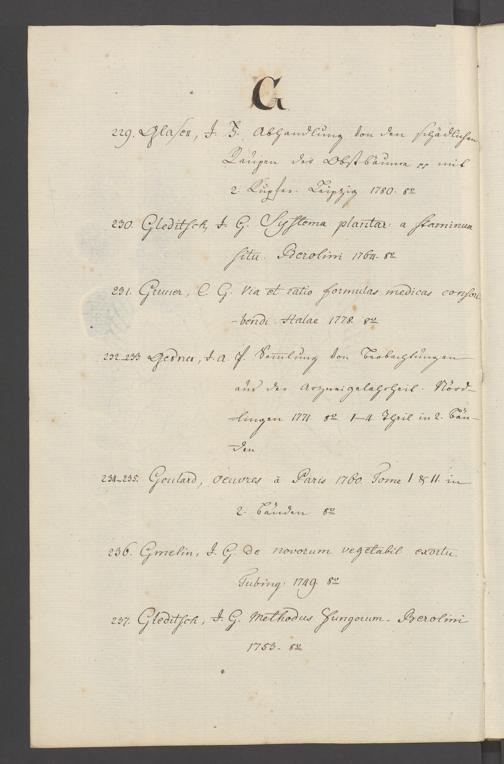 G
229. Glaser, J. F. Abhandlung von den schädlichen
Raupen der Obstbäume pp mit
2. Kupfer. Leipzig 1780. 8º
230. Gleditsch, J. G. Systema plantar: a staminum
situ. Berolini 1764. 8º
231. Gruner, C. G. Via et ratio formulas medicas conscri
-bendi. Halae 1778. 8º
232-233 Gesner, J. A. P. Samlung von Beobachtungen
aus der Arzneigelahrheit. Nörd-
-lingen 1771 8º 1-4 Theil in 2. Bän-
-den
234-235. Goulard, oeuvres à Paris 1760. Tome I & II. in
2. Bänden 8º
236. Gmelin, J. G. de novorum vegetabil exortu.
Tubing. 1749. 8º
237. Gleditsch, J. G. Methodus Fungorum. Berolini
1753. 8º